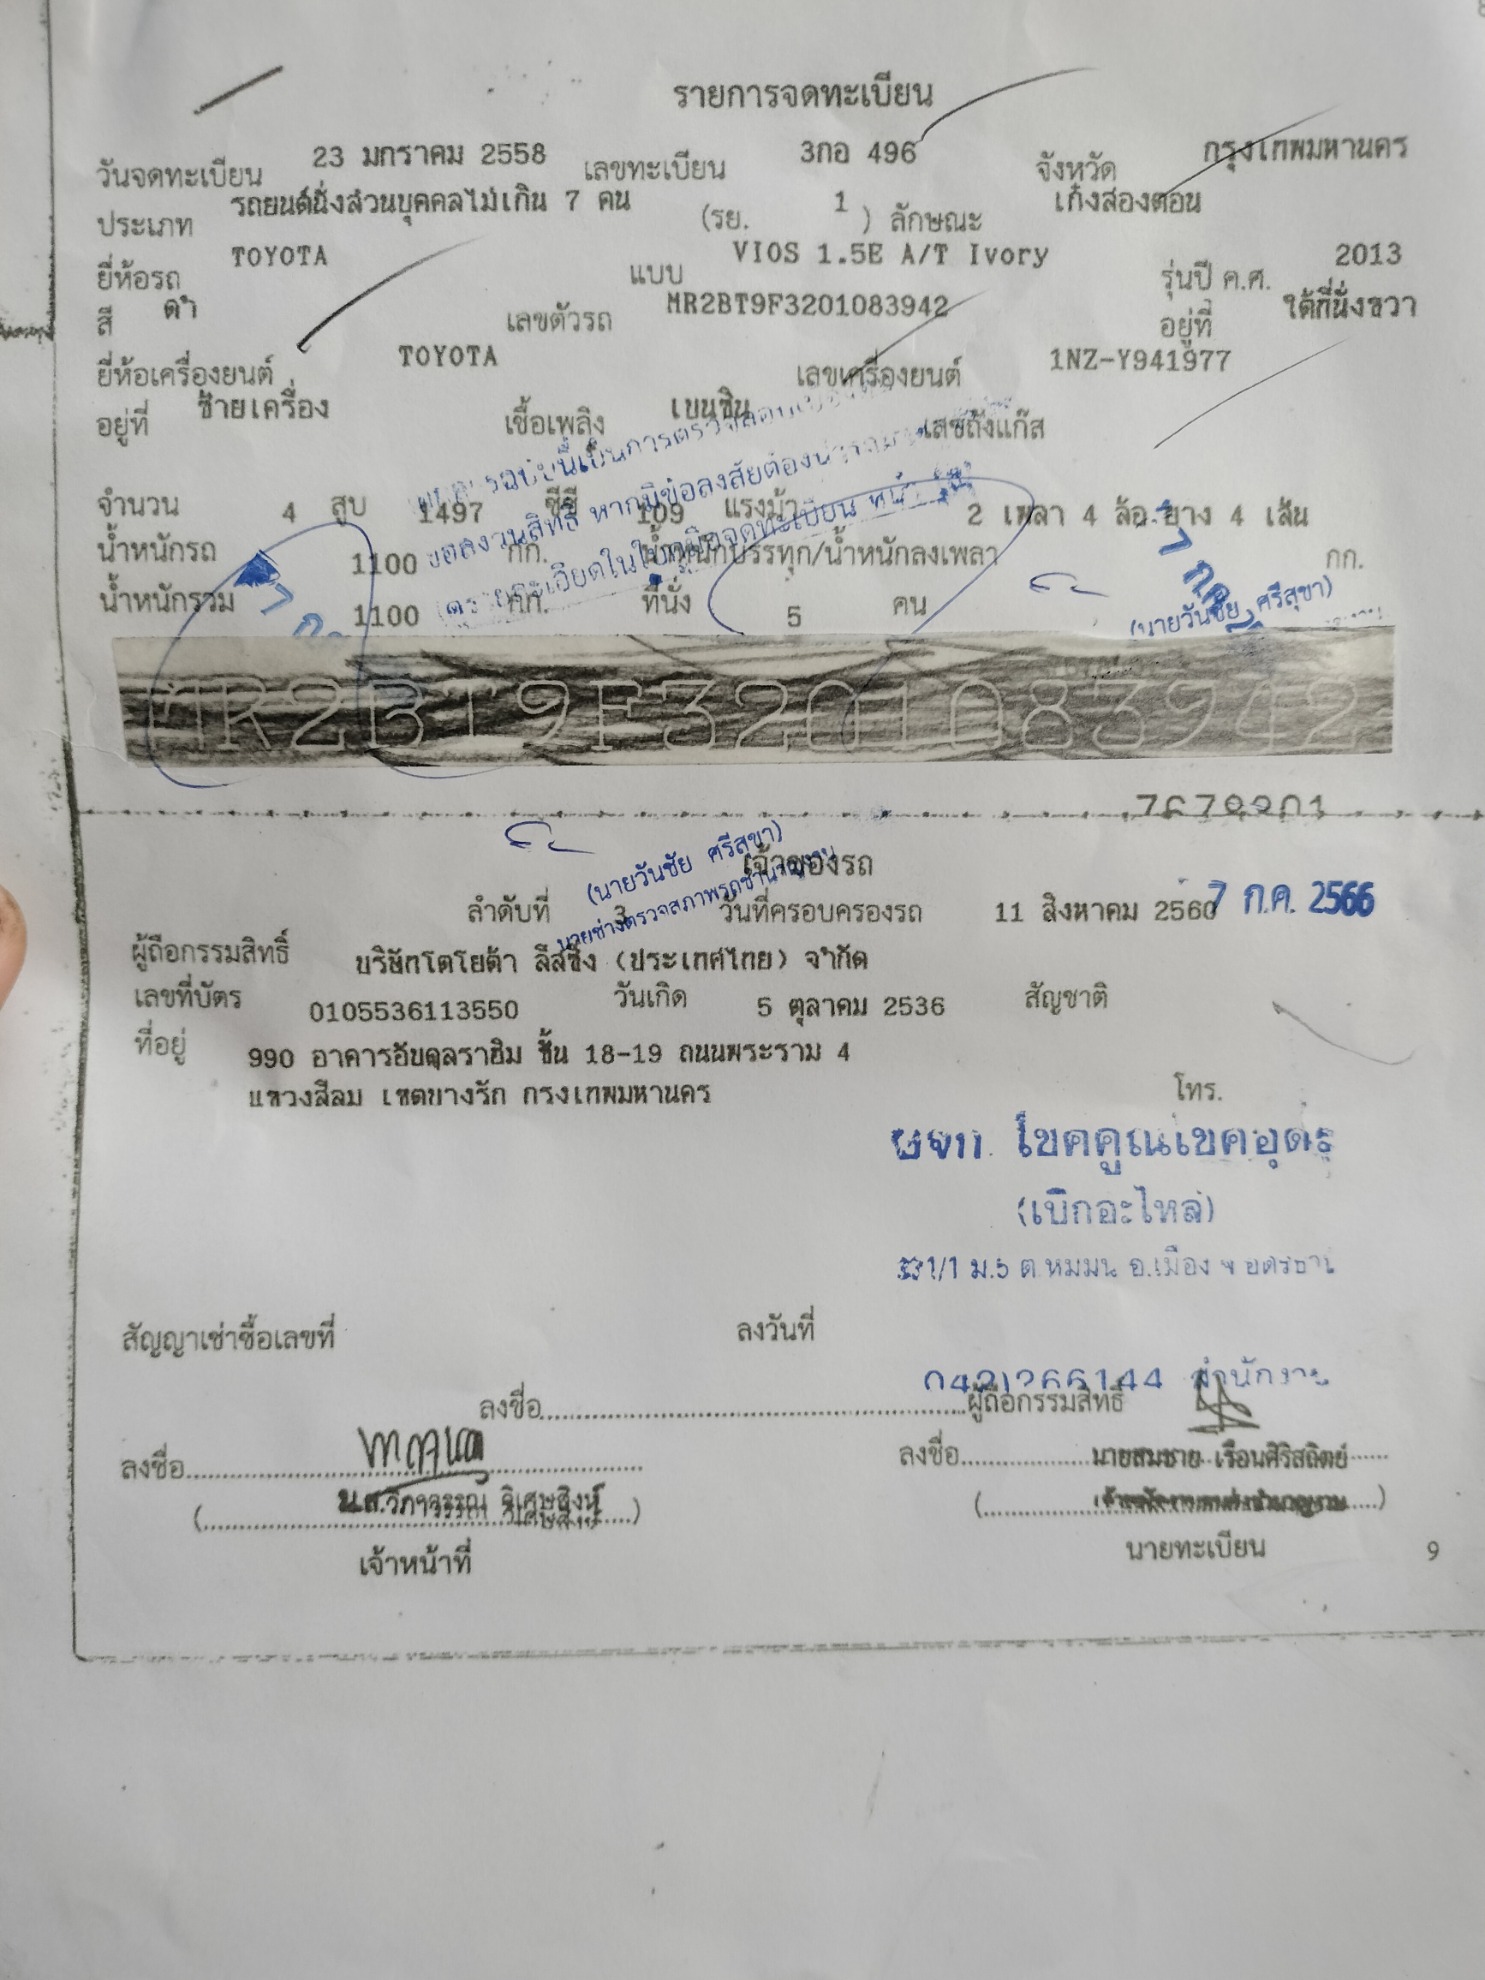 รายการจดทะเบียน
วันจดทะเบียน 23 มกราคม 2558 เลขทะเบียน 3กอ 496 จังหวัด กรุงเทพมหานคร
ประเภท รถยนต์นั่งส่วนบุคคลไม่เกิน 7 คน (รย. 1 ) ลักษณะ เก๋งสองตอน
ยี่ห้อรถ TOYOTA แบบ VIOS 1.5E A/T Ivory รุ่นปี ค.ศ. 2013
สี ดำ เลขตัวรถ MR2BT9F3201083942 อยู่ที่ ใต้ที่นั่งขวา
ยี่ห้อเครื่องยนต์ TOYOTA เลขเครื่องยนต์ 1NZ-Y941977
อยู่ที่ ซ้ายเครื่อง เชื้อเพลิง เบนซิน เลขถังแก๊ส
จำนวน 4 สูบ 1497 ซีซี 109 แรงม้า 2 เพลา 4 ล้อ ยาง 4 เส้น
น้ำหนักรถ 1100 กก. น้ำหนักบรรทุก/น้ำหนักลงเพลา กก.
น้ำหนักรวม 1100 กก. ที่นั่ง 5 คน
หากมีข้อสงสัยต้อง
(นายวันชัย ศรีสุขา)
7 ก.ค.
MR2BT9F3201083942
เจ้าของรถ
(นายวันชัย ศรีสุขา)
นายช่างตรวจสภาพรถชำนาญงาน
ลำดับที่ 3 วันที่ครอบครองรถ 11 สิงหาคม 2560 7 ก.ค. 2566
ผู้ถือกรรมสิทธิ์ บริษัทโตโยต้า ลีสซิ่ง (ประเทศไทย) จำกัด
เลขที่บัตร 0105536113550 วันเกิด 5 ตุลาคม 2536 สัญชาติ
ที่อยู่ 990 อาคารอับดุลราฮิม ชั้น 18-19 ถนนพระราม 4
แขวงสีลม เขตบางรัก กรุงเทพมหานคร โทร.
โชคคูณโชคอุดร
(เบิกอะไหล่)
ม.5 ต.หมูม่น อ.เมือง จ.อุดรธานี
สัญญาเช่าซื้อเลขที่ ลงวันที่
สำนักงาน
ลงชื่อ ผู้ถือกรรมสิทธิ์
ลงชื่อ ลงชื่อ นายสมชาย เรือนศิริสถิตย์
( น.ส.วิภาวรรณ วิเศษสิงห์ ) ( เจ้าพนักงานขนส่งชำนาญงาน )
เจ้าหน้าที่ นายทะเบียน 9